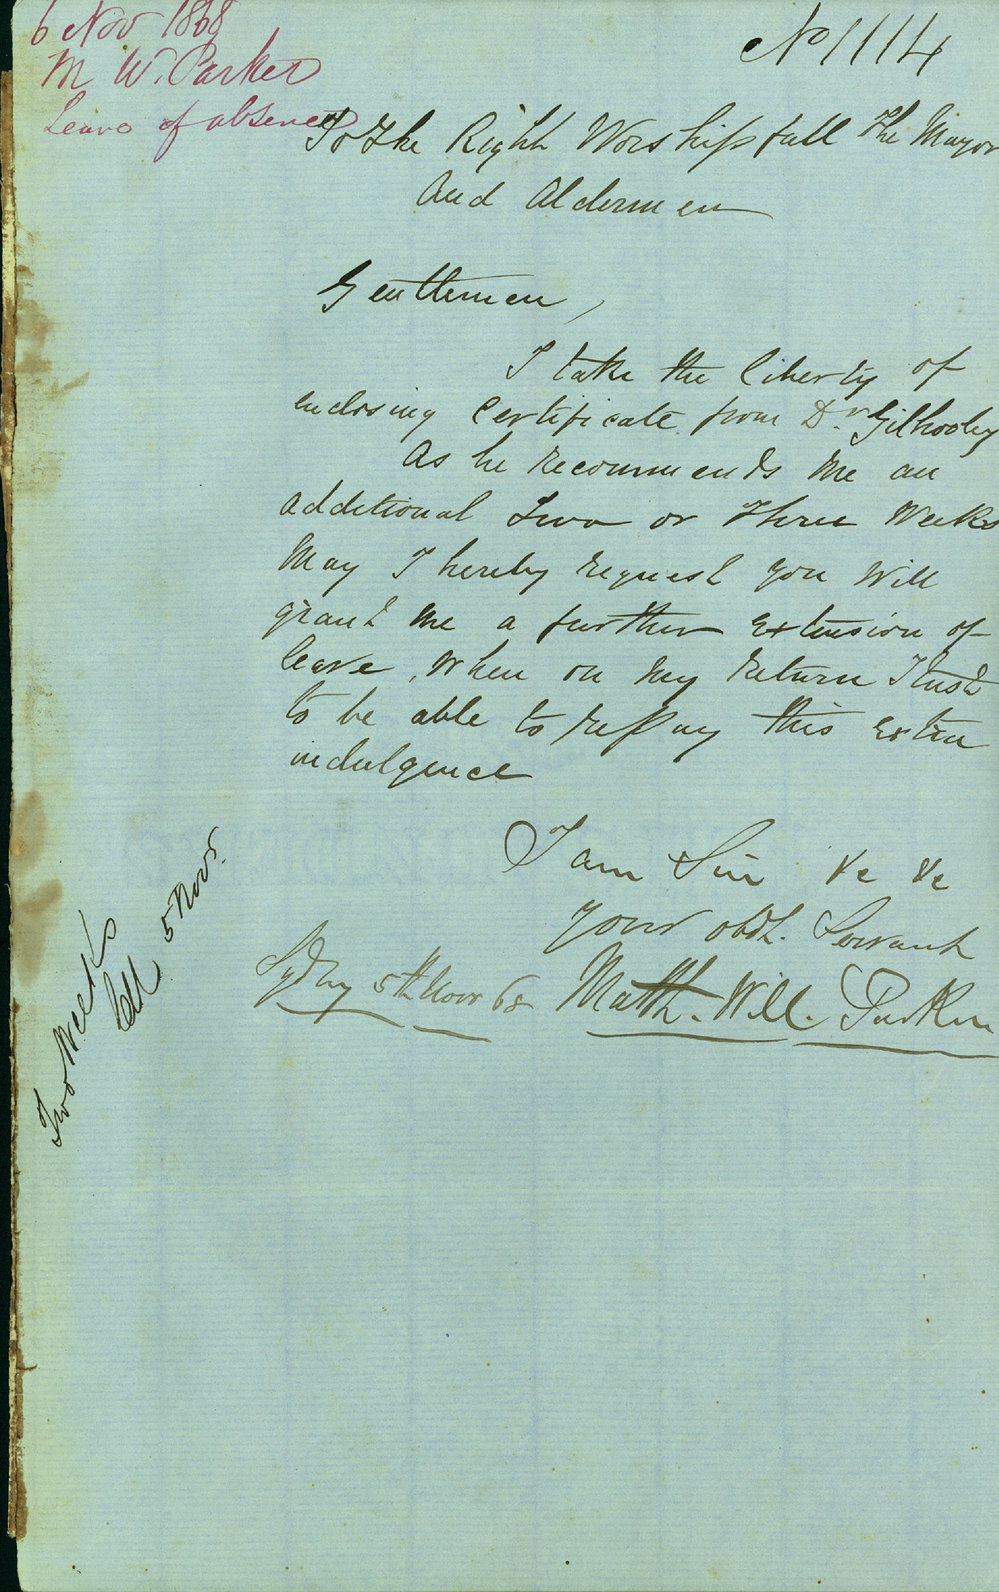 6 Nov 1868
M W. Parker
Leave of absence
No 1114
To The Right Worshipfull The Mayor
And Aldermen
Gentlemen,
I take the liberty of
enclosing Certificate from Dr. Gilhooley
As he recommends me an
additional Two or Three Weeks
May I hereby request you will
grant me a further extension of
leave, when on my return I trust
to be able to repay this extra
indulgence
I am Sir &c &c
your obdt. Servant
Sydney 5th Novr 68 Matth. Will. Parker
Two Weeks
5 Novr.